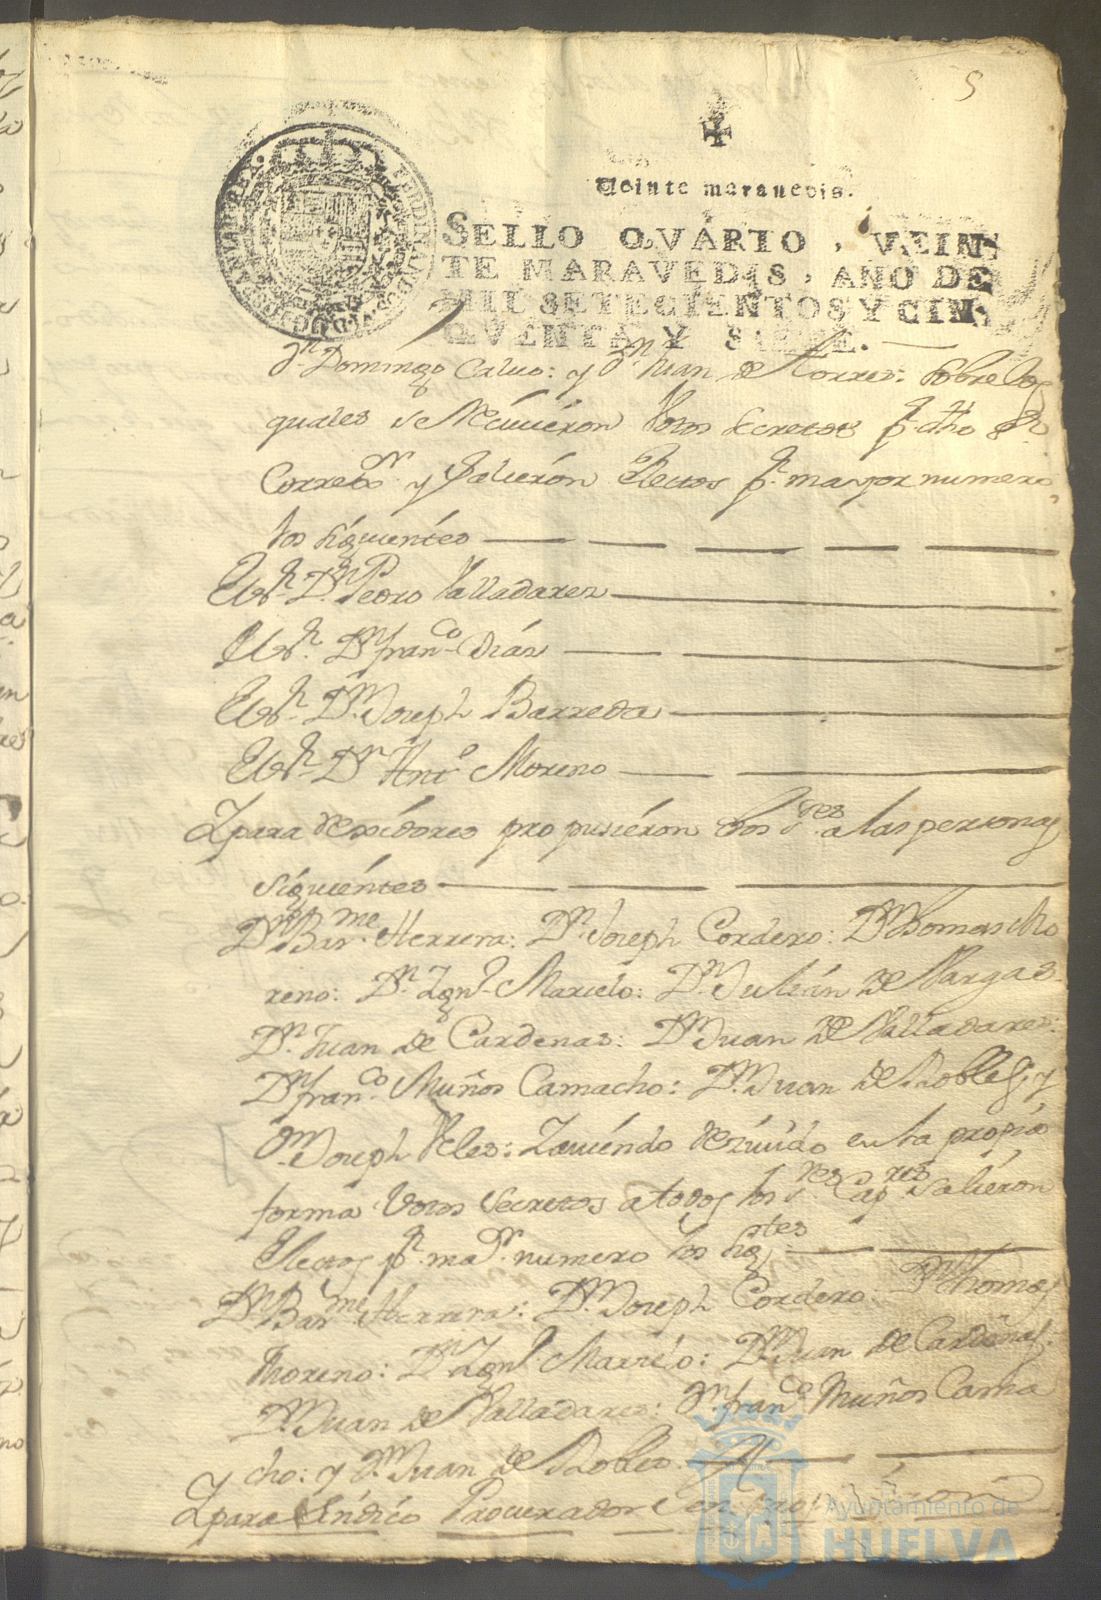 5
Veinte maravedis.
SELLO QVARTO, VEIN
TE MARAVEDIS, AÑO DE
MIL SETECIENTOS Y CIN
QVENTA Y SIETE.
Dn. Domingo Calvo: y Dn. Juan de Torres: Sobre los
quales se Recivieron Votos Secretos pr. dho Sr.
Corregor. y Salieron Electos pr. mayor numero
los siguientes
Dn. Pedro Valladares
Dn. Franco. Dias
Dn. Joseph Barreda
Dn. Anto. Moreno
Y para Rexidores propusieron dhos Sres. a las personas
siguientes
Dn. Barme. Herrera: Dn. Joseph Cordero: Dn. Thomas Mo
reno: Dn. Ygno. Marcelo: Dn. Julian de Vargas
Dn. Juan de Cardenas: Dn. Juan de Valladares:
Dn. Franco. Muños Camacho: Dn. Juan de Robles, y
Dn. Joseph Veles: Y aviendo Rezivido en la propia
forma Votos Secretos a todos los Sres. Capres. Salieron
Electos pr. maor. numero los sigtes.
Dn. Barme. Herrera: Dn. Joseph Cordero: Dn. Thomas
Moreno: Dn. Ygno. Marcelo: Dn. Juan de Cardenas,
Dn. Juan de Valladares: Dn. Franco. Muños Cama
cho: y Dn. Juan de Robles.
Y para Sindico Procurador
Ayuntamiento de
HUELVA